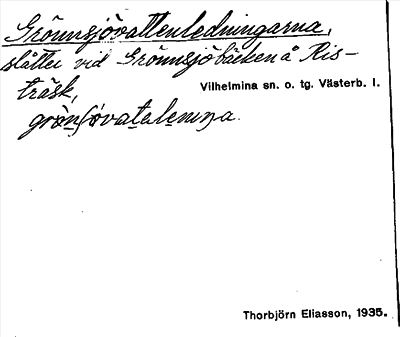 Grönnsjövattenledningarna,
slåtter vid Grönnsjöbäcken å Ris-
träsk,
Vilhelmina sn. o. tg. Västerb. l.
Thorbjörn Eliasson, 1935.